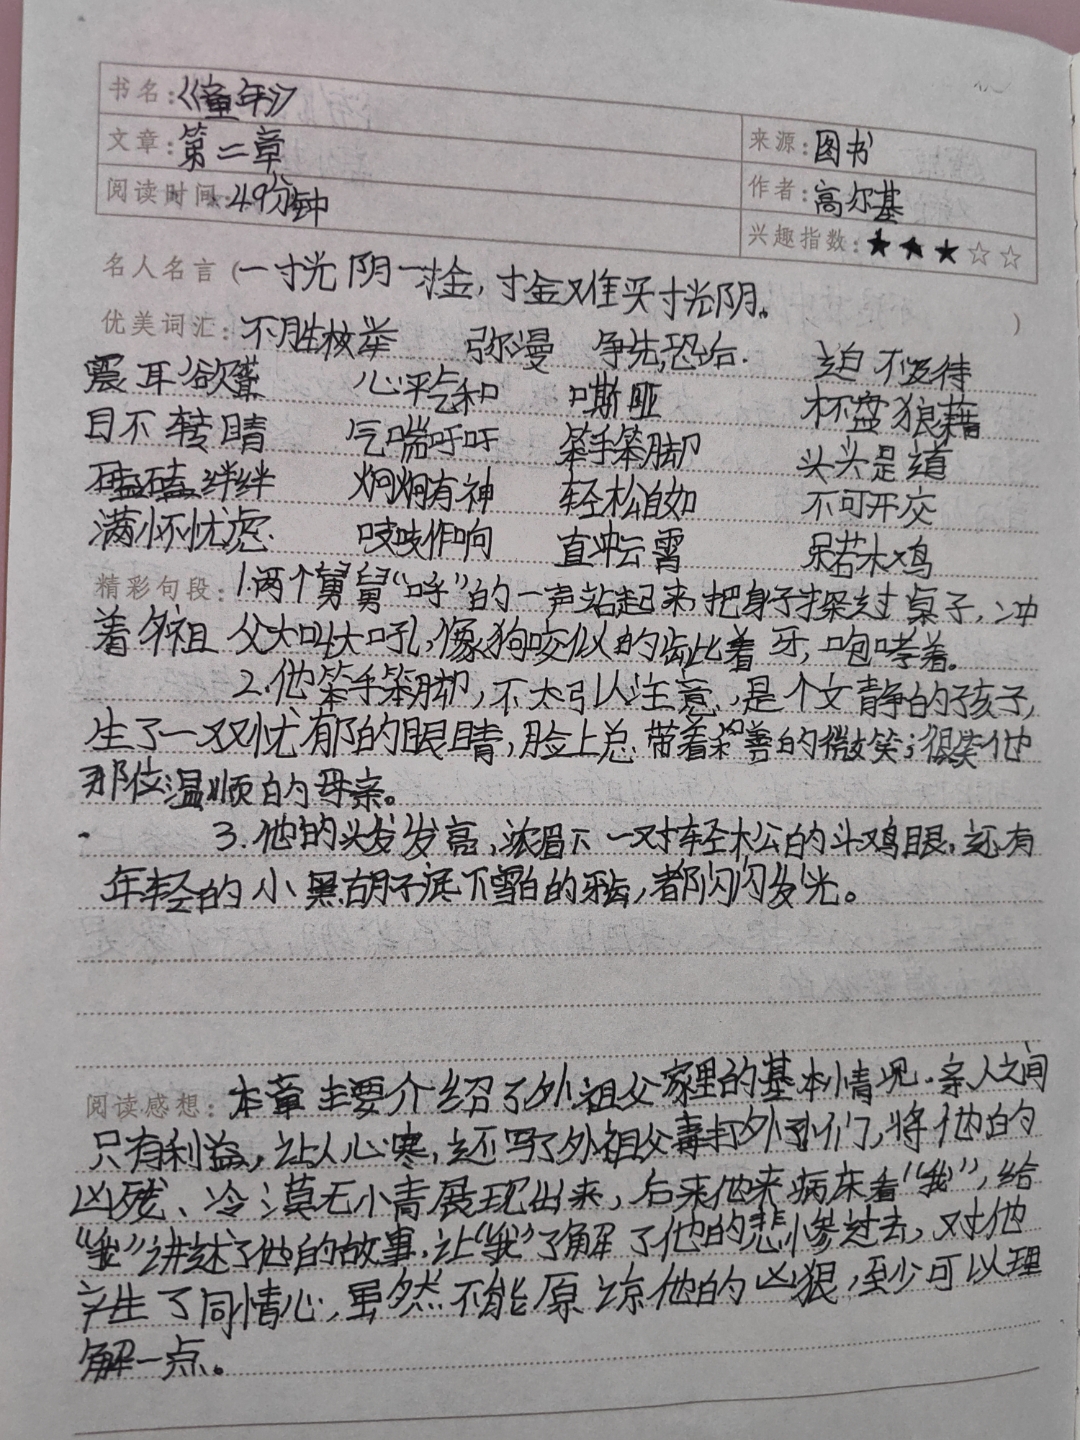 书名:《童年》
文章:第二章 来源:图书
阅读时间:49分钟 作者:高尔基
兴趣指数:★★★☆☆
名人名言(一寸光阴一寸金,寸金难买寸光阴。)
优美词汇:不胜枚举 弥漫 争先恐后. 迫不及待
震耳欲聋 心平气和 嘶哑 杯盘狼藉
目不转睛 气喘吁吁 笨手笨脚 头头是道
磕磕绊绊 炯炯有神 轻松自如 不可开交
满怀忧虑. 吱吱作响 直冲云霄 呆若木鸡
精彩句段:1.两个舅舅“呼”的一声站起来,把身子探过桌子,冲
着外祖父大叫大吼,像狗咬似的龇着牙,咆哮着。
2.他笨手笨脚,不太引人注意,是个文静的孩子,
生了一双忧郁的眼睛,脸上总带着和善的微笑;很笑他
那位温顺的母亲。
3.他的头发发亮,浓眉下一对轻松的斗鸡眼,还有
年轻的小黑胡子底下雪白的牙齿,都闪闪发光。
阅读感想:本章主要介绍了外祖父家里的基本情况.亲人之间
只有利益,让人心寒,还写了外祖父毒打外孙们,将他的
凶残、冷漠无情展现出来,后来他来病床看“我”,给
“我”讲述了他的故事,让“我”了解了他的悲惨过去,对他
产生了同情心,虽然不能原谅他的凶狠,至少可以理
解一点。